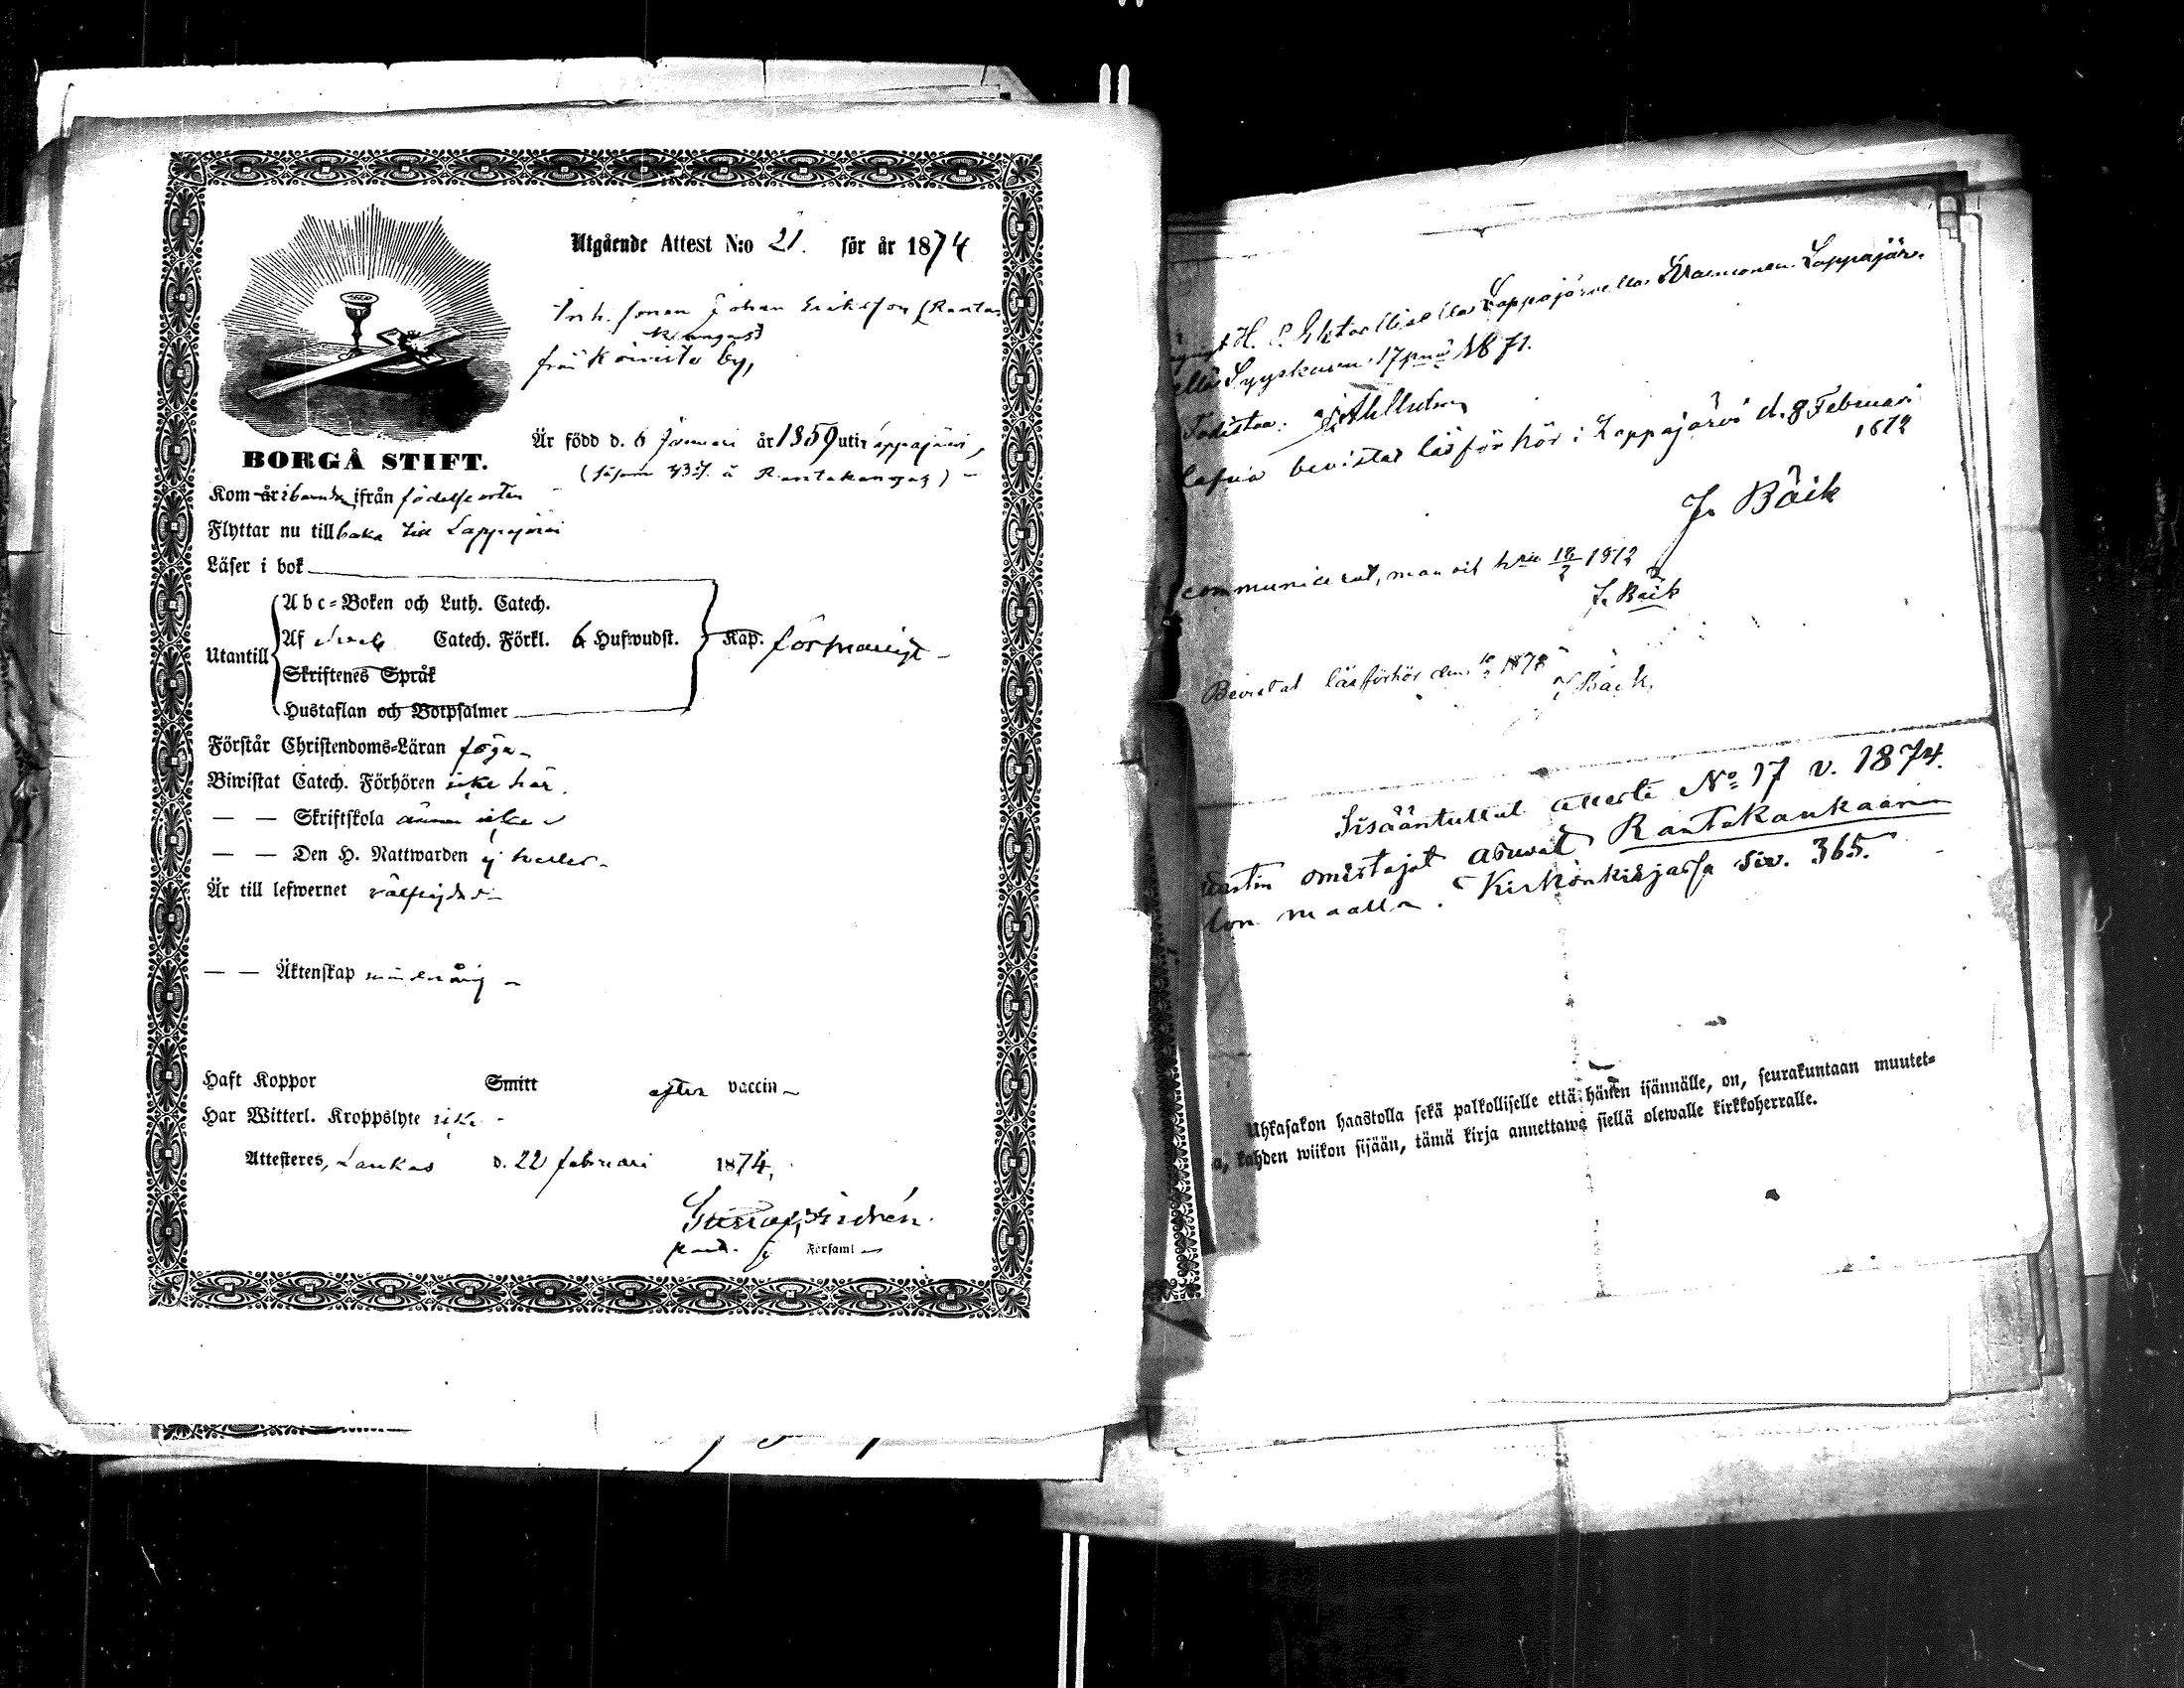 Utgående Attest N:o 21. för år 1874
Inh. sonen Johan Eriksson (Ranta
kangas)
från Koivisto by,
Är född d. 6 Januari år 1859 uti Lappajärvi,
BORGÅ STIFT.
(såsom å Rantakangas) –
Kom år i barndn ifrån födelseorten
Flyttar nu tillbaka till Lappajärvi
Läser i bok
Abc-Boken och Luth. Catech.
Utantill Af Catech. Förkl. 6 Hufwudst. Kap. försvarligt –
Skriftenes Språk
Hustaflan och Botpsalmer
Förstår Christendoms-Läran föga –
Biwistat Catech. Förhören icke här.
— — Skriftskola ännu icke
— — Den H. Nattwarden ej heller –
Är till lefwernet välfrejdad –
— — Äktenskap minderårig –
Haft Koppor Smitt efter vaccin –
Har Witterl. Kroppslyte icke –
Attesteres, Laukas d. 22 februari 1874,
Gustaf
Församl
H. E. Lappajärvellä Lappajär-
Syyskuun 17 pnä 1871.
Todistaa:
bevistat läsförhör i Lappajärvi d. 8 Februari
1872
J. Bäck
communicerat, man oit h:ne 18/2 1872
J. Bäck
Bevistat läsförhör den 1873
J. Bäck.
Sisääntullut attesti No 17 v. 1874.
omistajat asuvat Rantakankaan
lon maalla. Kirkonkirjassa siv. 365.
Uhkasakon haastolla sekä palkolliselle että hänen isännälle, on, seurakuntaan muutet-
a, kahden wiikon sisään, tämä kirja annettawa siellä olewalle kirkkoherralle.